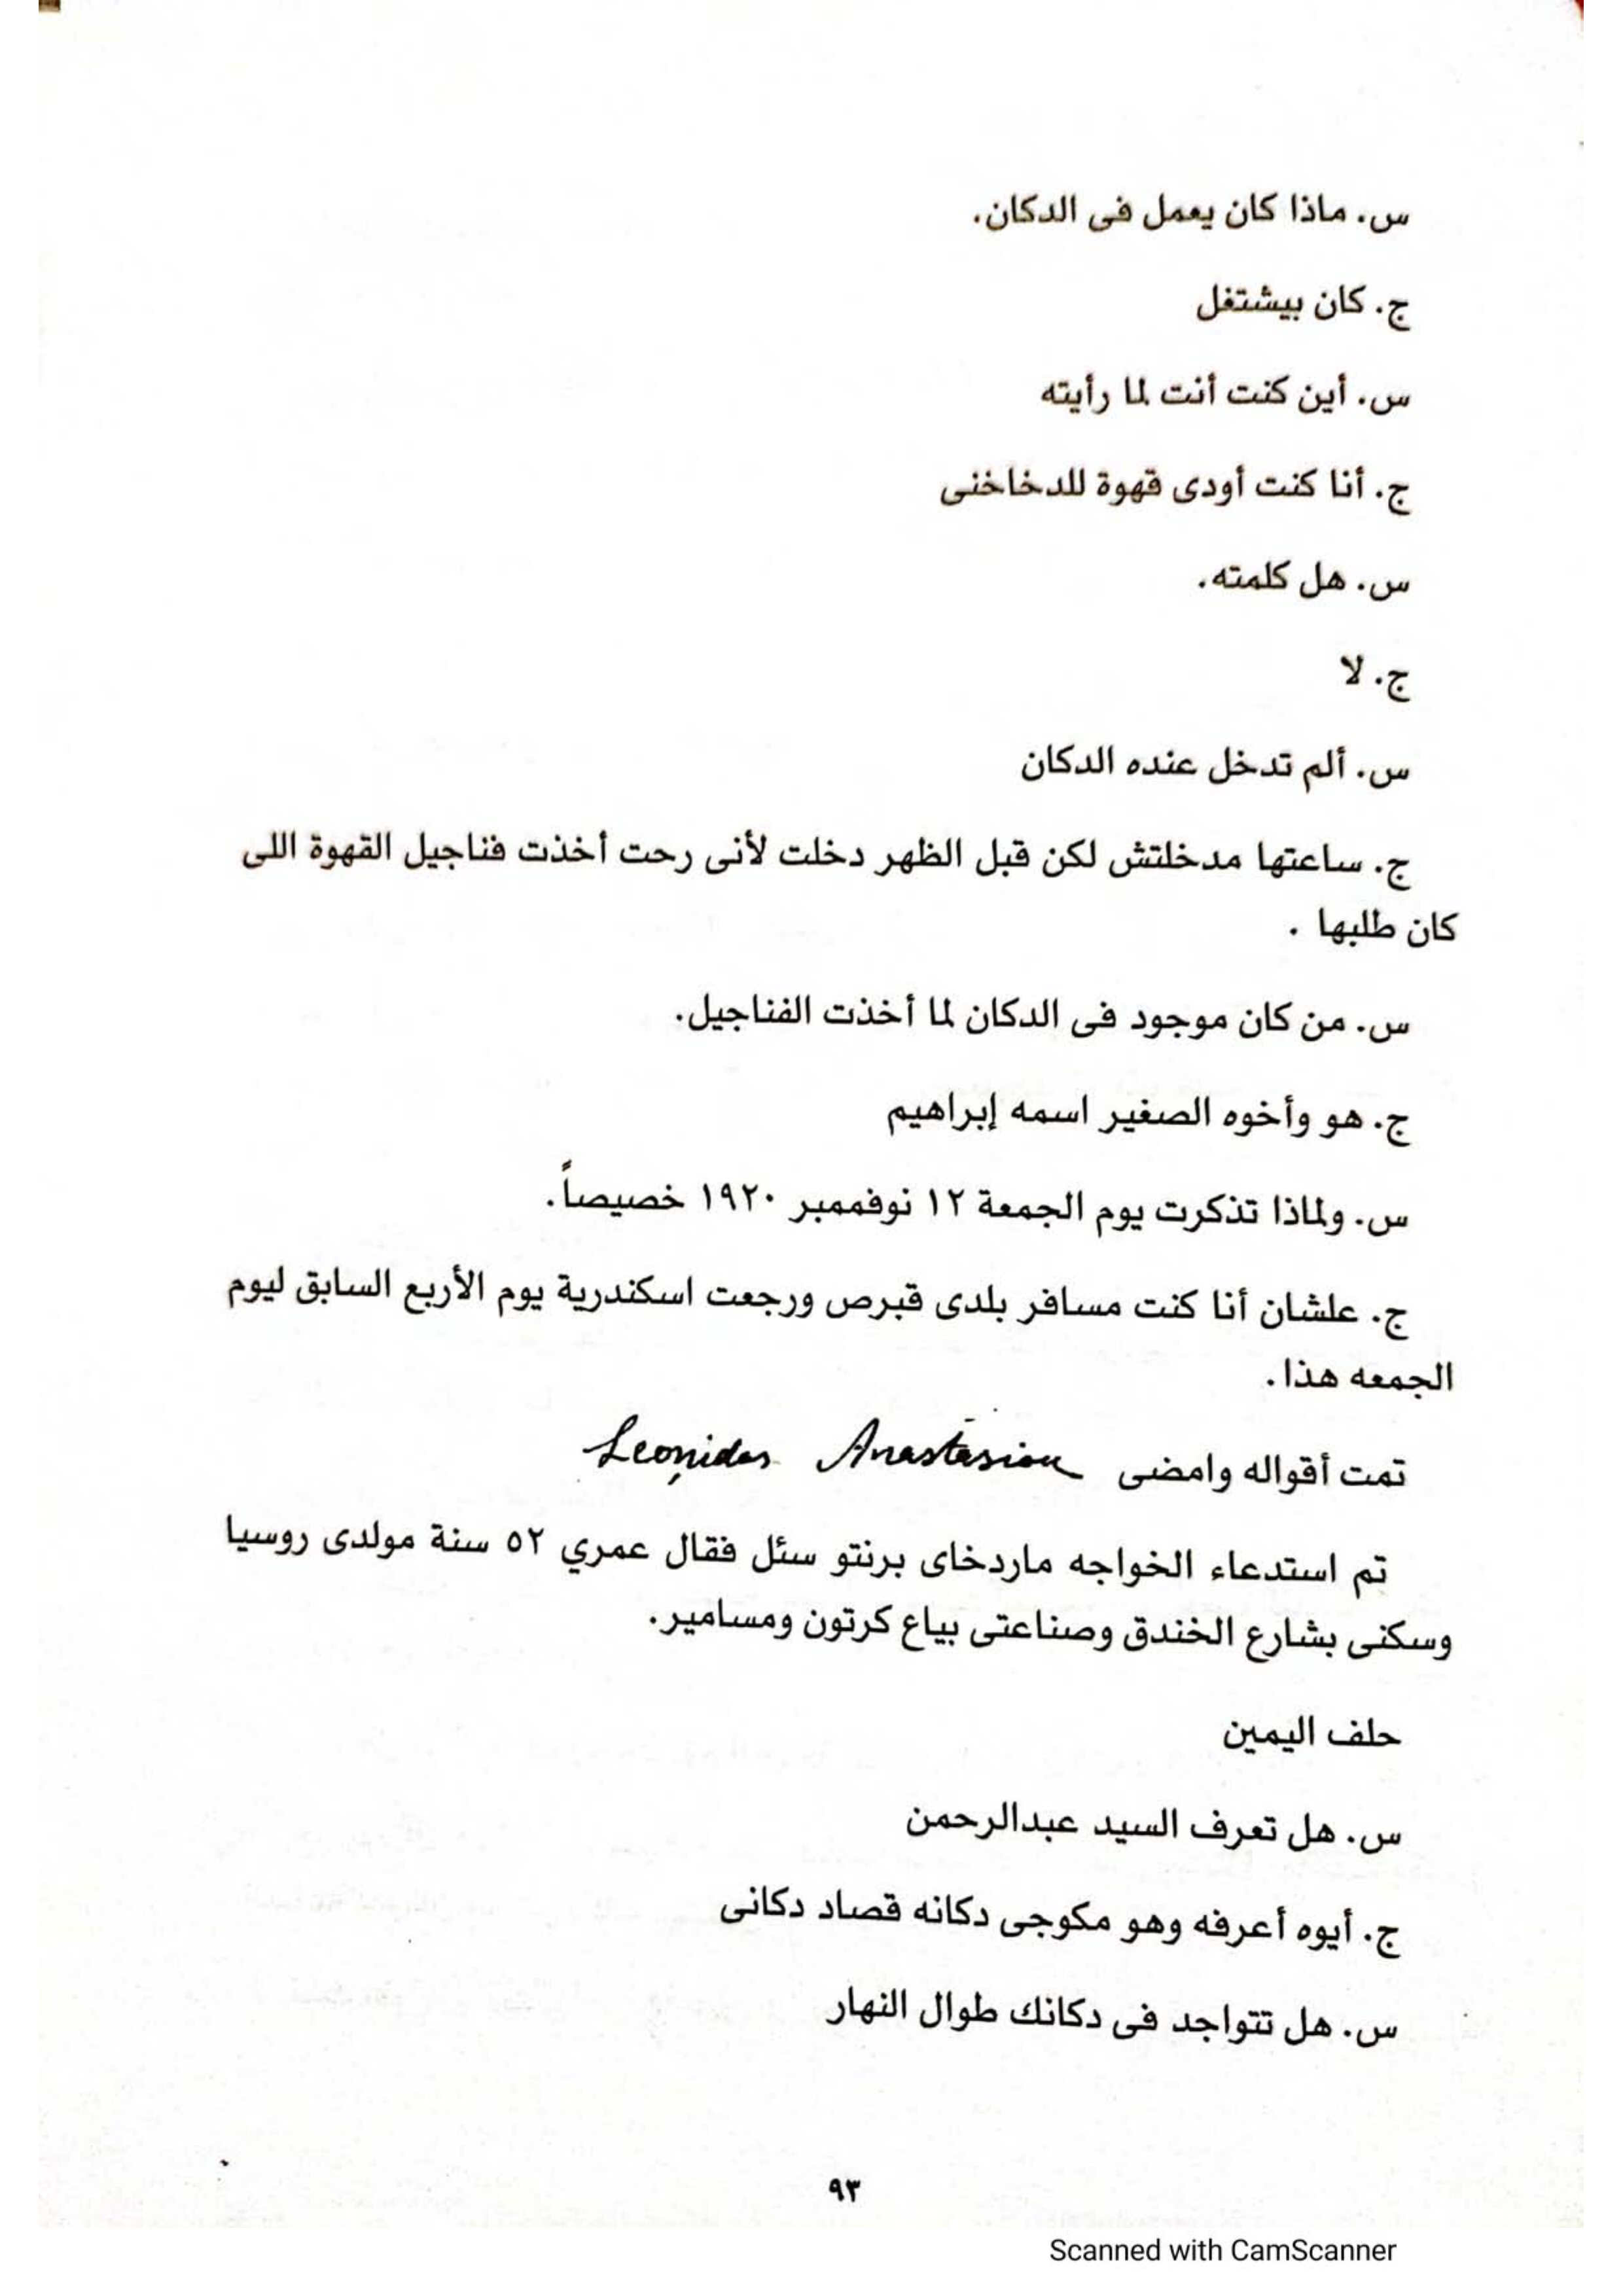 س. ماذا كان يعمل فى الدكان.
ج. كان بيشتغل
س. أين كنت أنت لما رأيته
ج. أنا كنت أودى قهوة للدخاخنى
س. هل كلمته.
ج. لا
س. ألم تدخل عنده الدكان
ج. ساعتها مدخلتش لكن قبل الظهر دخلت لأنى رحت أخذت فناجيل القهوة اللى
كان طلبها .
س. من كان موجود فى الدكان لما أخذت الفناجيل.
ج. هو وأخوه الصغير اسمه إبراهيم
س. ولماذا تذكرت يوم الجمعة ١٢ نوفممبر ١٩٢٠ خصيصاً.
ج. علشان أنا كنت مسافر بلدى قبرص ورجعت اسكندرية يوم الأربع السابق ليوم
الجمعه هذا.
تمت أقواله وامضى Leonidas Anastasiou
تم استدعاء الخواجه ماردخاى برنتو سئل فقال عمري ٥٢ سنة مولدى روسيا
وسكنى بشارع الخندق وصناعتى بياع كرتون ومسامير.
حلف اليمين
س. هل تعرف السيد عبدالرحمن
ج. أيوه أعرفه وهو مكوجى دكانه قصاد دكانى
س. هل تتواجد فى دكانك طوال النهار
٩٣
Scanned with CamScanner